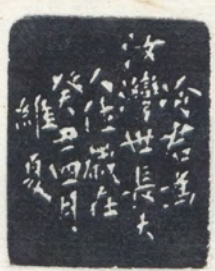 為
灣世長大
人歲在
癸丑四月
維夏